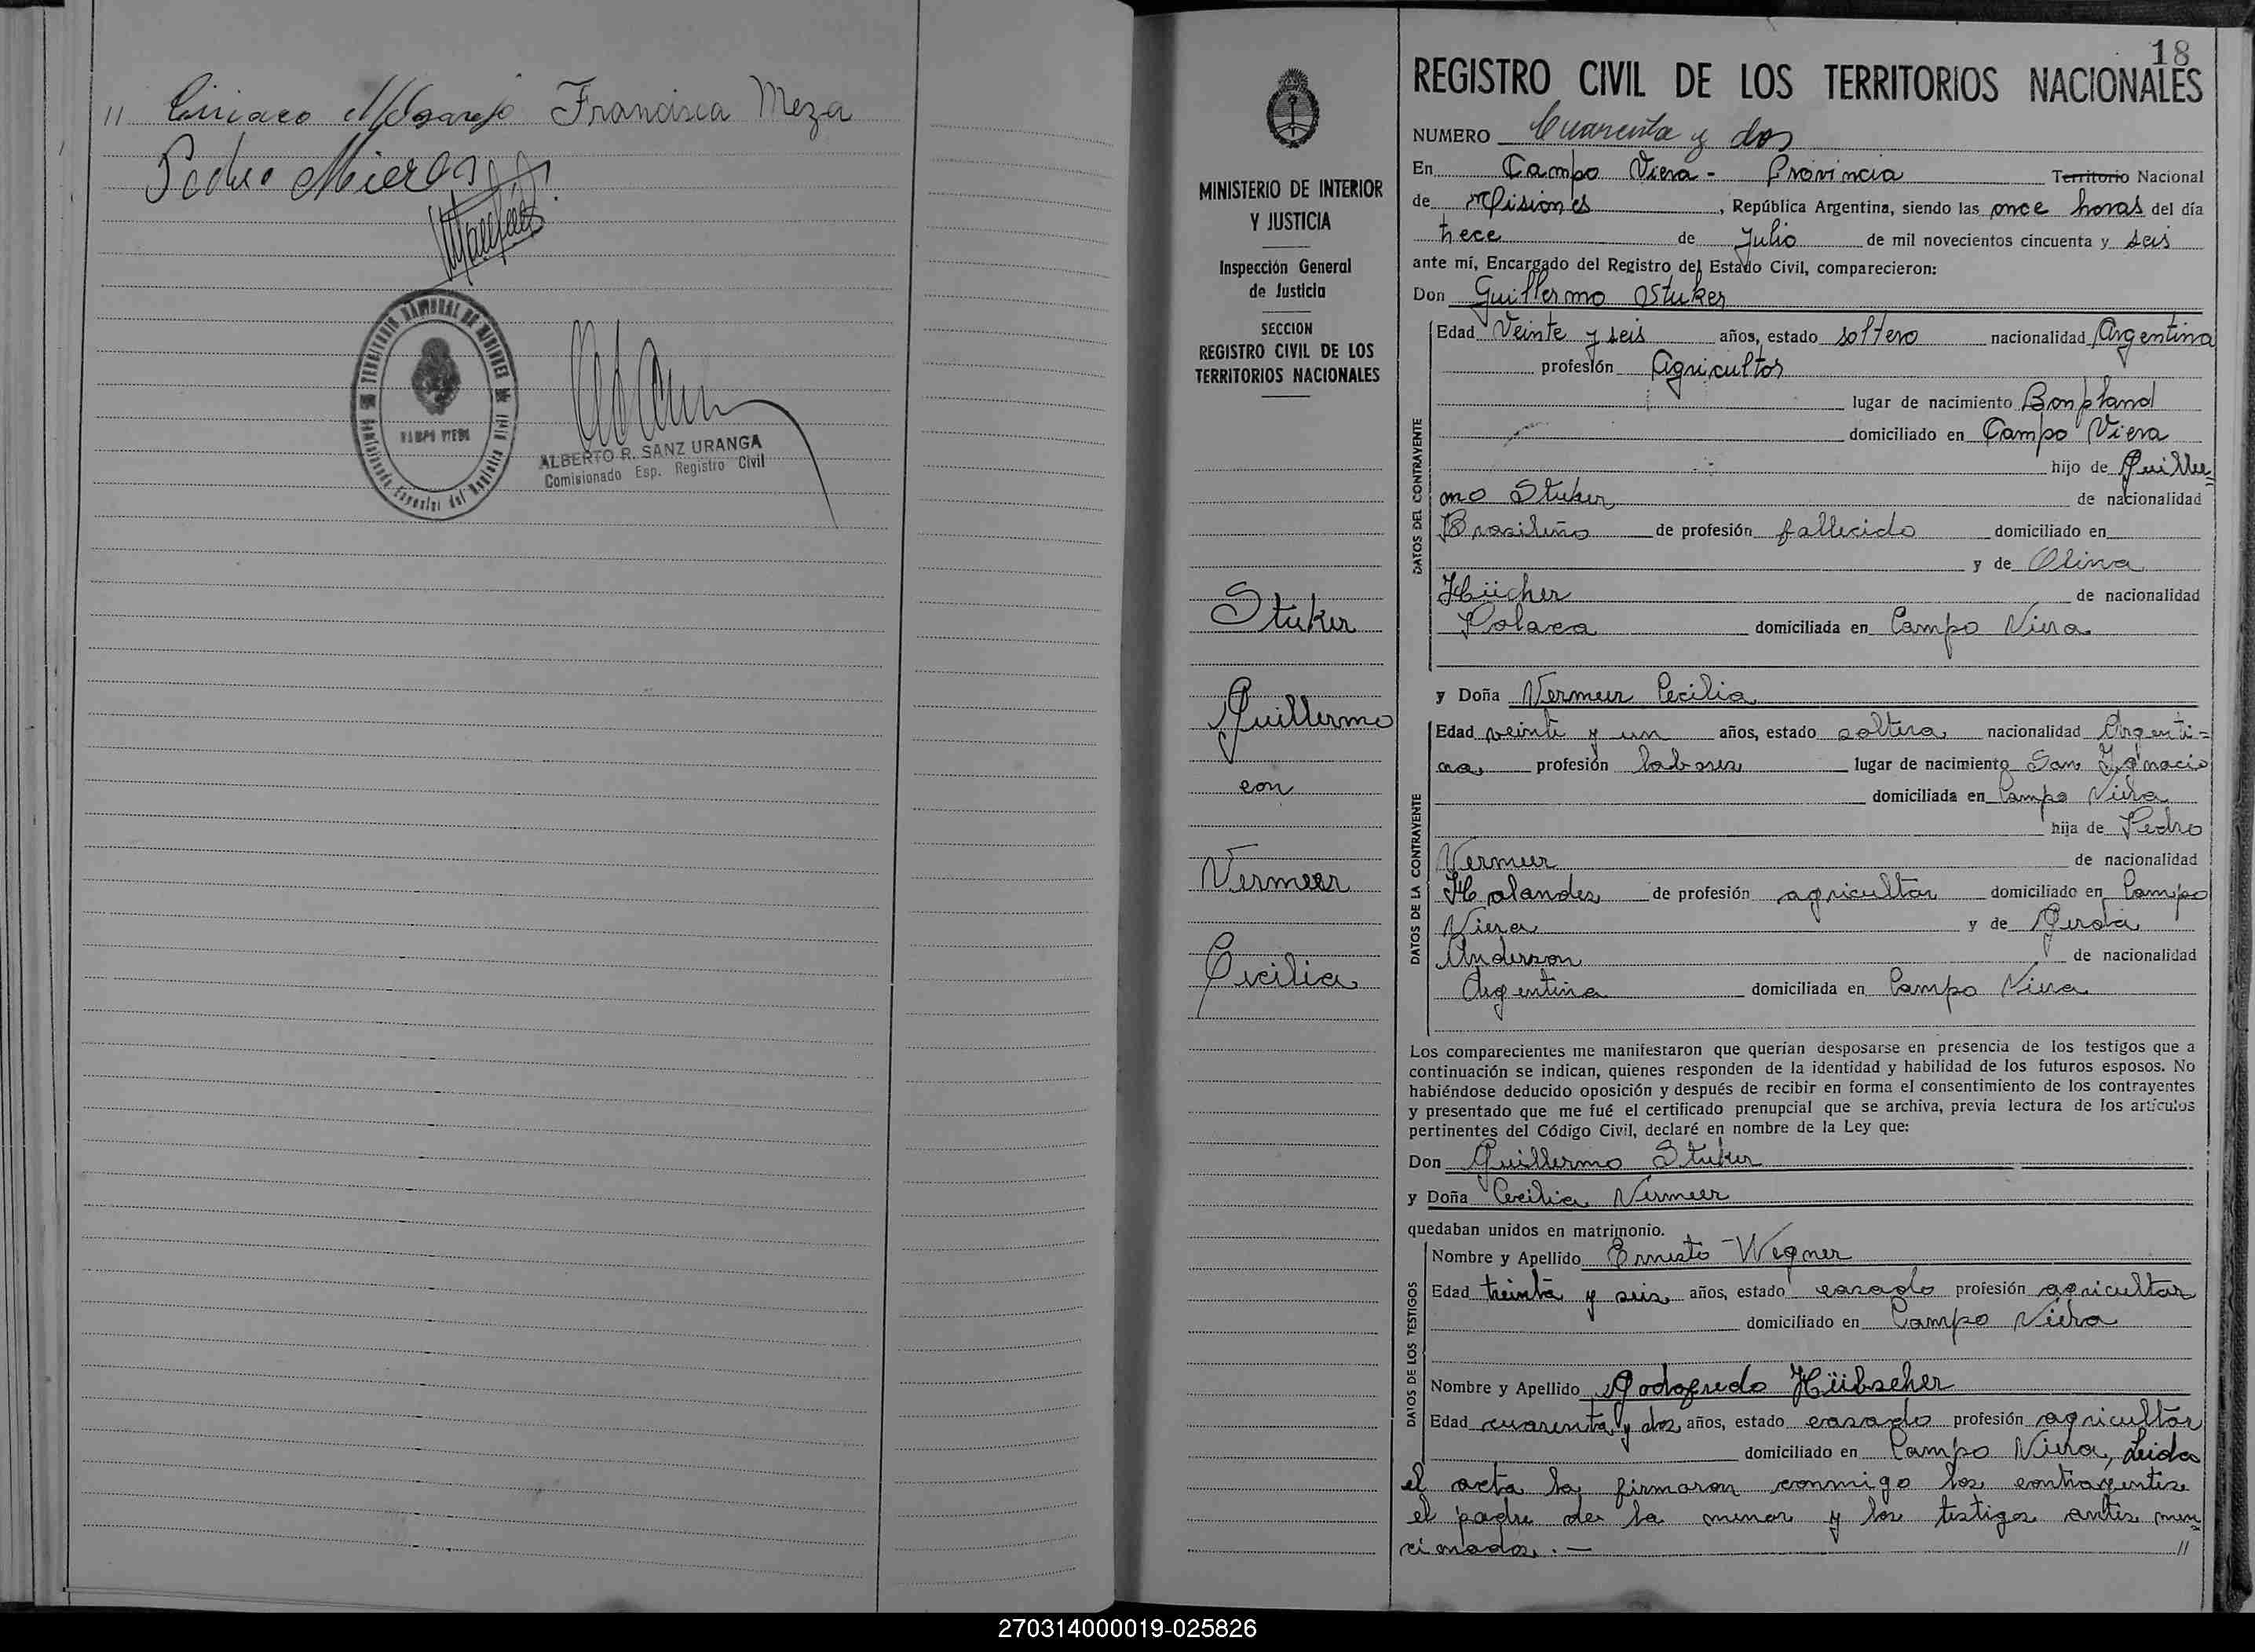 " Ciriaco Melgarejo Francisca Meza
Pedro Mieres
TERRITORIO NACIONAL DE MISIONES
CAMPO VIERA
Comisionado Especial del Registro Civil
ALBERTO R. SANZ URANGA
Comisionado Esp. Registro Civil
MINISTERIO DE INTERIOR
Y JUSTICIA
Inspección General
de Justicia
SECCION
REGISTRO CIVIL DE LOS
TERRITORIOS NACIONALES
Stuker
Guillermo
con
Vermeer
Cecilia
18
REGISTRO CIVIL DE LOS TERRITORIOS NACIONALES
NUMERO Cuarenta y dos
En Campo Viera - Provincia Territorio Nacional
de Misiones, República Argentina, siendo las once horas del día
trece de Julio de mil novecientos cincuenta y seis
ante mí, Encargado del Registro del Estado Civil, comparecieron:
Don Guillermo Stuker
DATOS DEL CONTRAYENTE
Edad Veinte y seis años, estado soltero nacionalidad Argentina
profesión Agricultor
lugar de nacimiento Bonpland
domiciliado en Campo Viera
hijo de Guiller=
mo Stuker de nacionalidad
Brasileño de profesión fallecido domiciliado en
y de Olina
Hücher de nacionalidad
Polaca domiciliada en Campo Viera
y Doña Vermeer Cecilia
DATOS DE LA CONTRAYENTE
Edad veinte y un años, estado soltera nacionalidad Argenti=
na profesión labores lugar de nacimiento San Ignacio
domiciliada en Campo Viera
hija de Pedro
Vermeer de nacionalidad
Holandes de profesión agricultor domiciliado en Campo
Viera y de Gerda
Anderson de nacionalidad
Argentina domiciliada en Campo Viera
Los comparecientes me manifestaron que querían desposarse en presencia de los testigos que a
continuación se indican, quienes responden de la identidad y habilidad de los futuros esposos. No
habiéndose deducido oposición y después de recibir en forma el consentimiento de los contrayentes
y presentado que me fué el certificado prenupcial que se archiva, previa lectura de los artículos
pertinentes del Código Civil, declaré en nombre de la Ley que:
Don Guillermo Stuker
y Doña Cecilia Vermeer
quedaban unidos en matrimonio.
DATOS DE LOS TESTIGOS
Nombre y Apellido Ernesto Wegner
Edad treinta y seis años, estado casado profesión agricultor
domiciliado en Campo Viera
Nombre y Apellido Godofredo Hübscher
Edad cuarenta y dos años, estado casado profesión agricultor
domiciliado en Campo Viera, Leida
el acta la firmaron conmigo los contrayentes
el padre de la menor y los testigos antes men=
cionados. — //
270314000019-025826